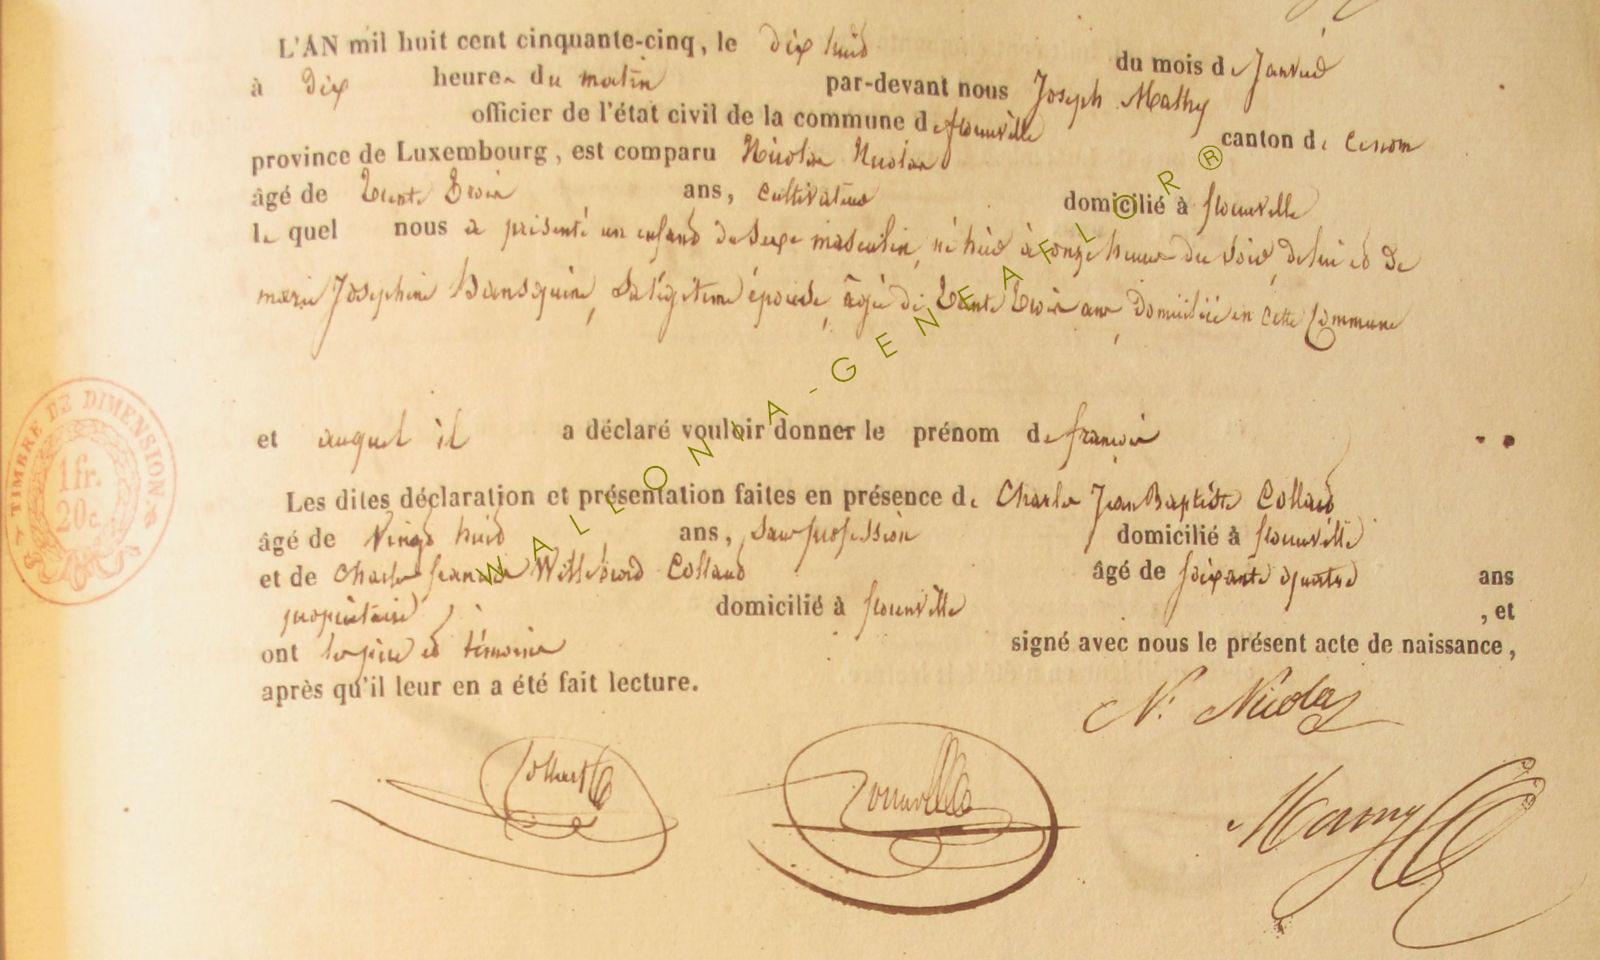 L'AN mil huit cent cinquante-cinq, le dix huit du mois de Janvier
à dix heures du matin par-devant nous Joseph Mathy
officier de l'état civil de la commune de florenville canton de
province de Luxembourg, est comparu Nicolas Nicolas
âgé de trente trois ans, cultivateur domicilié à florenville
le quel nous a présenté un enfant du sexe masculin, né hier à onze heures du soir, de lui et de
marie Josephine Hansquine, sa légitime épouse, âgée de trente trois ans, domiciliée en cette Commune
et auquel il a déclaré vouloir donner le prénom de françois
Les dites déclaration et présentation faites en présence de Charles Jean Baptiste Collard
âgé de Vingt huit ans, sans profession domicilié à florenville
et de Charles francois Willebrord Collard âgé de soixante quatre ans
propriétaire domicilié à florenville, et
ont les père et témoins signé avec nous le présent acte de naissance,
après qu'il leur en a été fait lecture.
N. Nicolas
TIMBRE DE DIMENSION
1 fr.
20 c.
WALLONIA-GENEAFLOR®
©